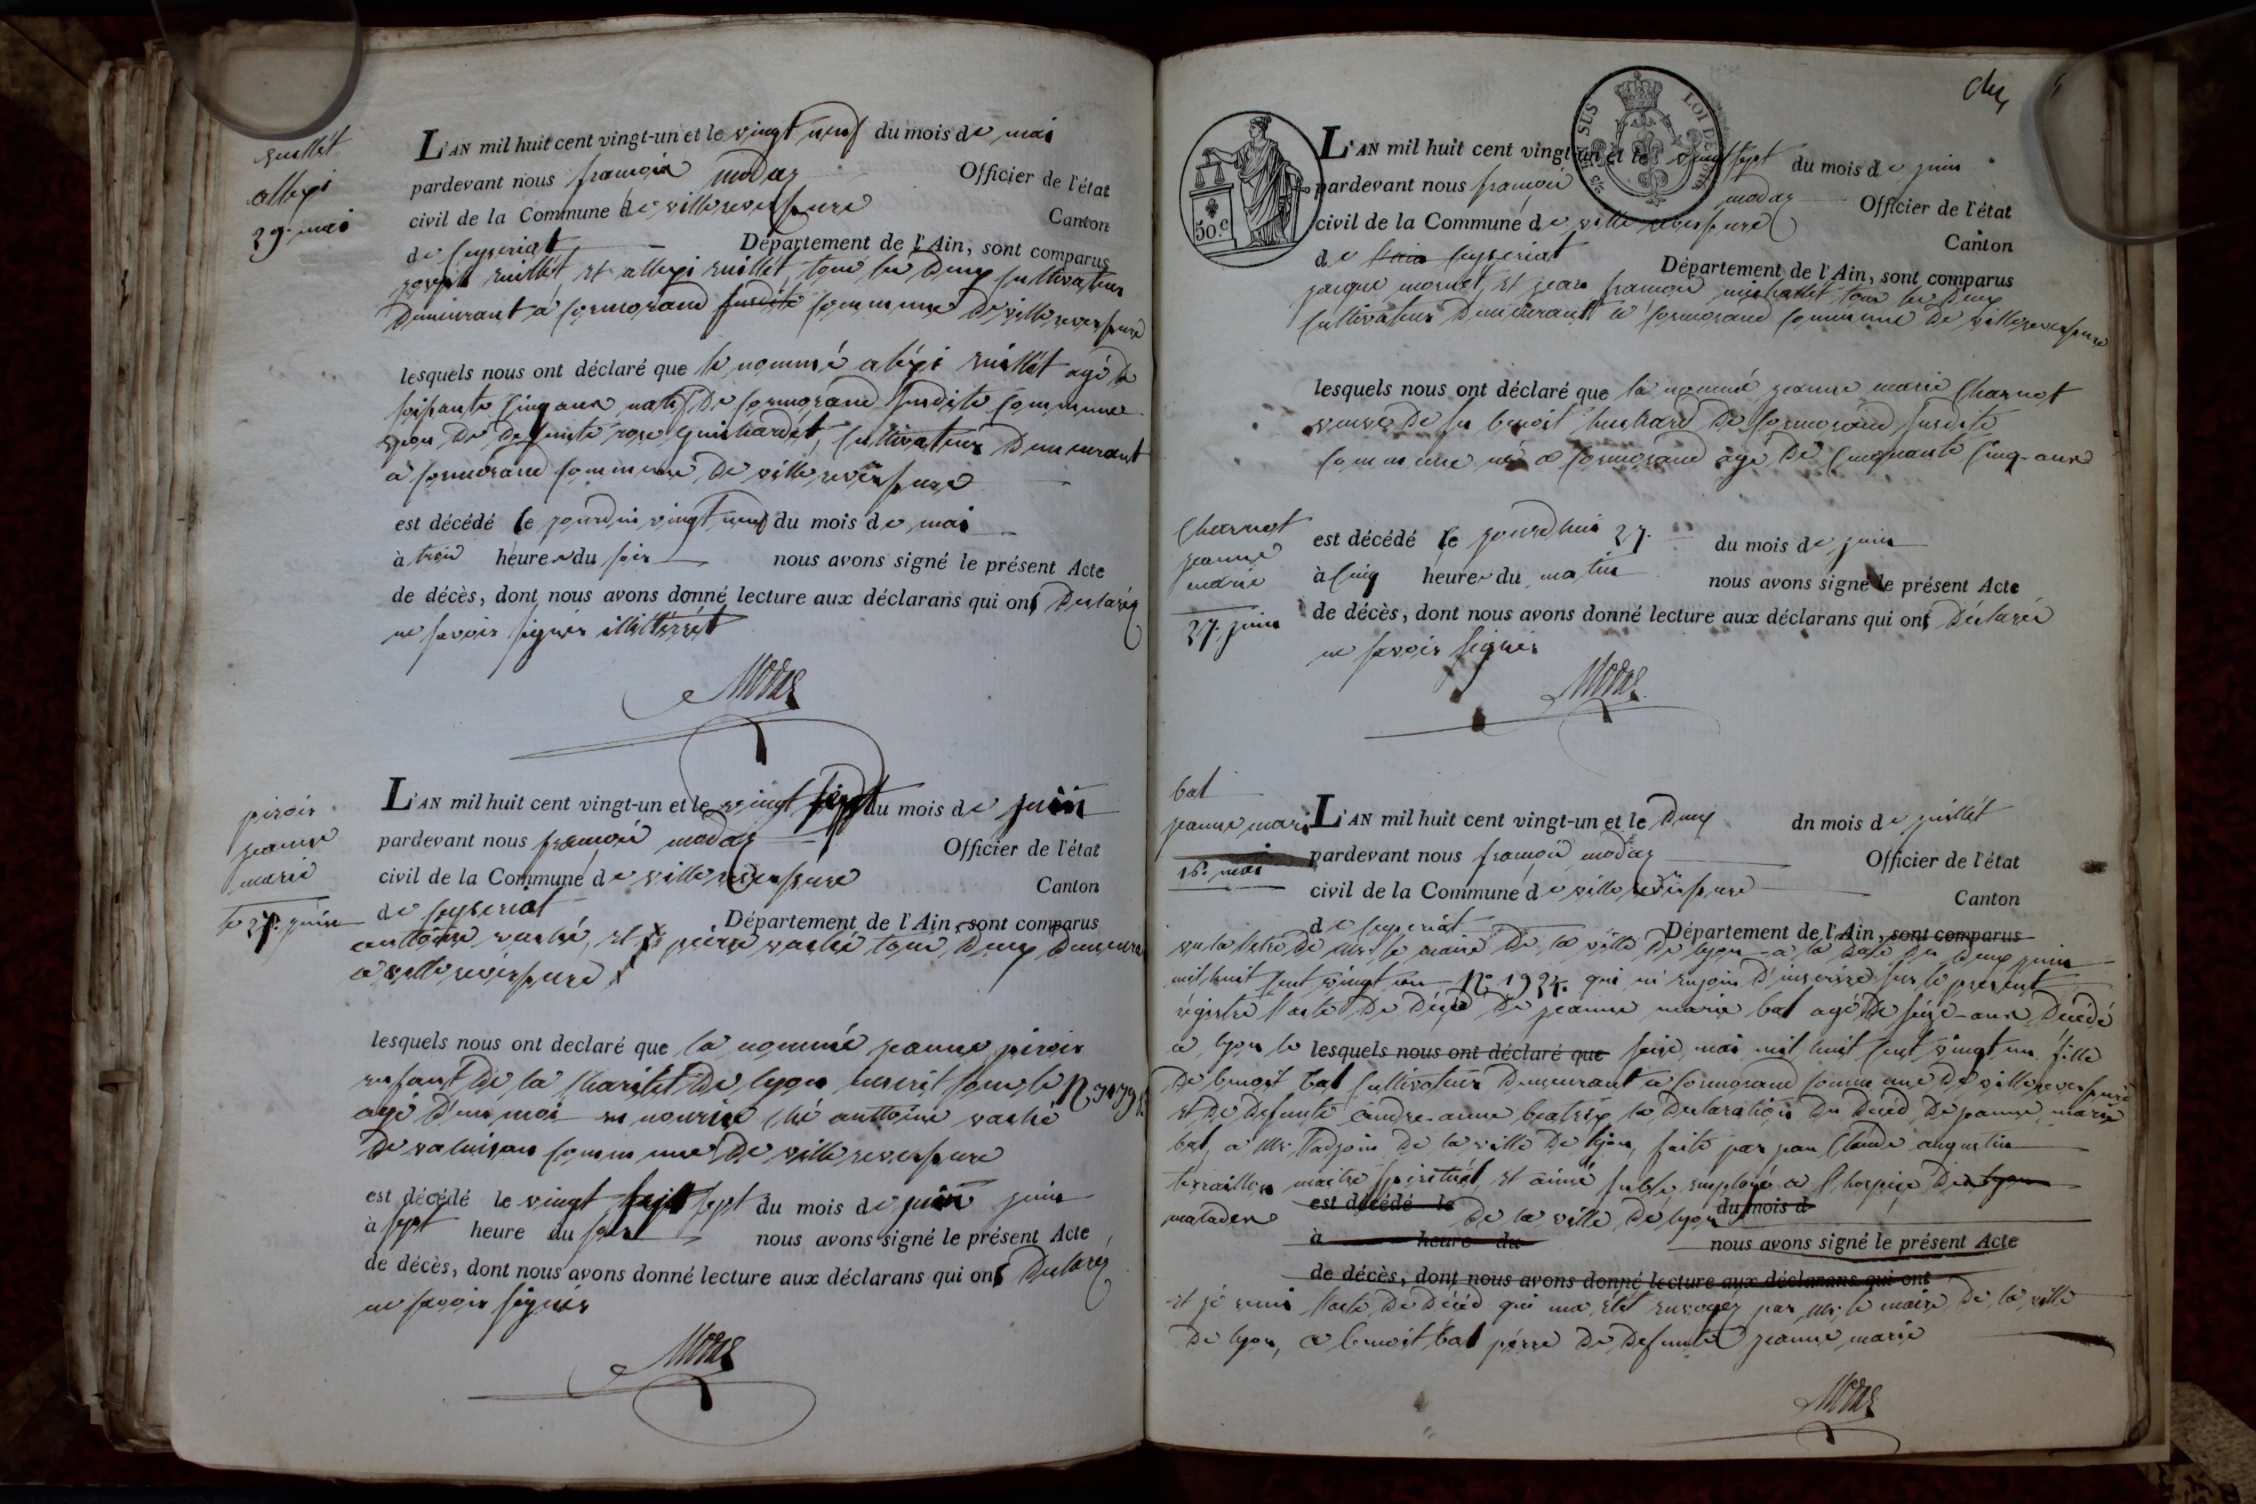 ruillét
allexi
29. mai
L'AN mil huit cent vingt-un et le vingt neuf du mois de mai
pardevant nous françois modas Officier de l'état
civil de la Commune de villereverssure Canton
de Ceyseriat Département de l'Ain, sont comparus
joseph ruillét, et allexi ruillét, tous les deux cultivateur
demeurant à cormorand susdite commune de villereverssure
lesquels nous ont déclaré que le nommé aléxi ruillét agé de
soixante cinq ans natif de cormorand susdite commune
epou de defunte rose guichardét, cultivateur demeurant
à cormorand commune de villereverssure
est décédé le jourdui vingt neuf du mois de mai
à troi heure du soir nous avons signé le présent Acte
de décès, dont nous avons donné lecture aux déclarans qui ont declaréz
ne savoir signér illitterét
Modas
piroir
jeanne
marie
le 27. juin
L'AN mil huit cent vingt-un et le vingt sept du mois de juin
pardevant nous françois modas Officier de l'état
civil de la Commune de villereverssure Canton
de Ceyseriat Département de l'Ain, sont comparus
anttoine vaché, et pierre vaché tous deux demeurant
à villereverssure
lesquels nous ont declaré que la nommé jeanne piroir
enfant de la charitét de lyon inscrit sous le N.
agé d'un moi en nourice ché anttoine vaché
de valuisan commune de villereverssure
est décédé le vingt sept du mois de juin juin
à sept heure du soir nous avons signé le présent Acte
de décès, dont nous avons donné lecture aux déclarans qui ont declaréz
ne savoir signér
Modas
SUS LOI DE
50.c
L'AN mil huit cent vingt-un et le vingt sept du mois de juin
pardevant nous françois modas Officier de l'état
civil de la Commune de villereverssure Canton
de Ceyseriat Département de l'Ain, sont comparus
jacque mornet, et jean françois michallét tous les deux
cultivateur demeurant à cormorand commune de villereverssure
lesquels nous ont déclaré que la nommé jeanne marie Charnot
veuve de feu benoit huchard de cormorand susdite
commune né a cormorand agé de cinquante cinq ans
Charnot
jeanne
marie
27. juin
est décédé le jourdhui 27. du mois de juin
à cinq heure du matin nous avons signé le présent Acte
de décès, dont nous avons donné lecture aux déclarans qui ont déclaréz
ne savoir signér
Modas
bal
jeanne marie
16. mai
L'AN mil huit cent vingt-un et le deux dn mois de juillét
pardevant nous françois modas Officier de l'état
civil de la Commune de villereverssure Canton
de Ceyseriat Département de l'Ain, sont comparus
vu la letre de Mr. le maire de la ville de lyon a la date du deux juin
mil huit cent vingt un N. 1924. qui m'enjoin d'inscrire sur le present
régistre l'acte de décé de jeanne marie bal agé de seize ans décédé
a lyon le lesquels nous ont déclaré que seize mai mil huit cent vingt un fille
de benoit bal cultivateur demeurant a cormorand commune de villereverssure
et de defunte andre-anne beatrix la declaration du décéd de jeanne marie
bal a Mr. l'adjoin de la ville de lyon, faite par jean Claude augustin
terraillon maitre spirituél, et aimé employé a l'hospice de lyon
maladen est décédé le de la ville de lyon du mois d
à heure du nous avons signé le présent Acte
de décès, dont nous avons donné lecture aux déclarans qui ont
et jé remi l'acte de décéd qui ma étét envoyez par Mr. le maire de la ville
de lyon, a benoit bal pérre de defunte jeanne marie
Modas